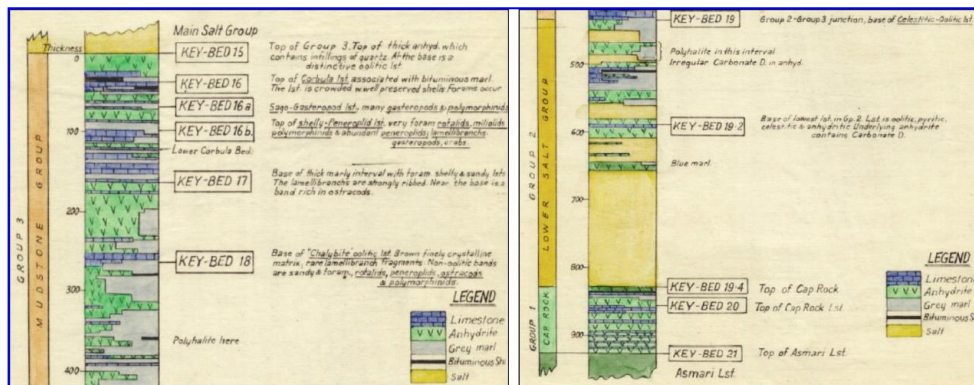 Main Salt Group
Thickness
0
KEY-BED 15
Top of Group 3. Top of thick anhyd. which
contains infillings of quartz. At the base is a
distinctive oolitic lst.
KEY-BED 16
Top of Corbula lst associated with bituminous marl.
The lst. is crowded w. well preserved shells. Forams occur
KEY-BED 16a
Sago-Gasteropod lst., many gasteropods & polymorphinids
100
KEY-BED 16b
Top of shelly-Peneroplid lst. very foram rotalids, miliolids
polymorphinids & abundant peneroplids; lamellibranchs
gasteropods, crabs.
Lower Corbula Bed
KEY-BED 17
Base of thick marly interval with foram shelly & sandy lsts
The lamellibranchs are strongly ribbed. Near the base is a
band rich in ostracods.
200
KEY-BED 18
Base of "Chalybite" oolitic lst. Brown finely crystalline
matrix, rare lamellibranch fragments. Non-oolitic bands
are sandy & foram., rotalids, peneroplids, ostracods
& polymorphinids.
300
Polyhalite here
400
GROUP 3
MUDSTONE GROUP
LEGEND
Limestone
Anhydrite
Grey marl
Bituminous Sh
Salt
KEY-BED 19
Group 2-Group 3 junction, base of Celestitic-Oolitic lst
Polyhalite in this interval
Irregular Carbonate D. in anhyd.
500
KEY-BED 19-2
Base of lowest lst. in Gp. 2. Lst. is oolitic, pyritic,
celestitic & anhydritic Underlying anhydrite
contains Carbonate D.
600
Blue marl
700
800
KEY-BED 19-4
Top of Cap Rock
KEY-BED 20
Top of Cap Rock Lst.
900
KEY-BED 21
Top of Asmari Lst.
Asmari Lst.
GROUP 2
LOWER SALT GROUP
GROUP 1
CAP ROCK
LEGEND
Limestone
Anhydrite
Grey marl
Bituminous Sh
Salt